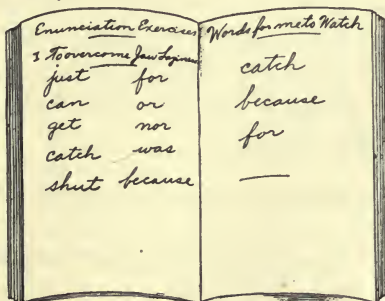 Enunciation Exercises
I To overcome Jaw Laziness
just for
can or
get nor
catch was
shut because
Words for me to Watch
catch
because
for